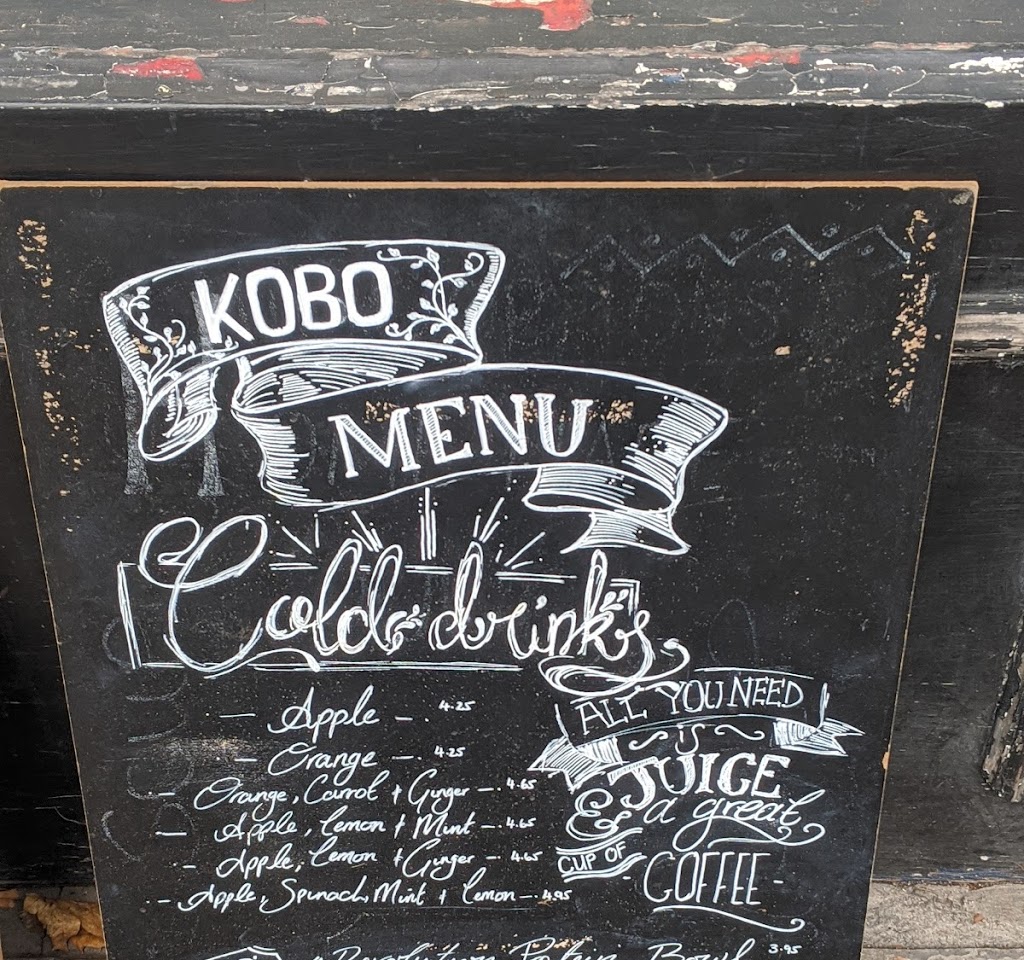 KOBO
MENU
Cold drinks
Apple 4.25
Orange 4.25
Orange, Carrot + Ginger 4.65
Apple, lemon + Mint 4.65
Apple, lemon + Ginger 4.65
Apple, Spinach, Mint + lemon 4.95
ALL YOU NEED
is
JUICE
& a great
CUP OF
COFFEE
Revolution Protein Bowl 3.95